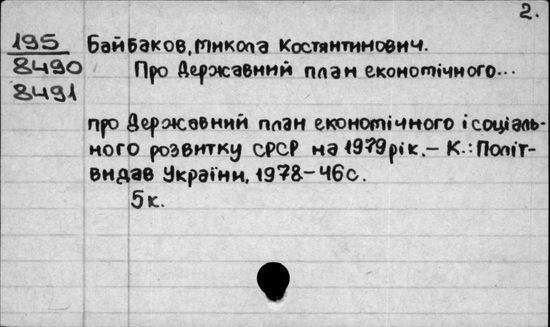 2.
195 Байбаков, Микола Костянтинович.
8490 Про Державний план економічного...
8491
про Державний план економічного і соціаль-
ного розвитку СРСР на 1979 рік. – К.: Політ-
видав України, 1978 – 46 с.
5 к.